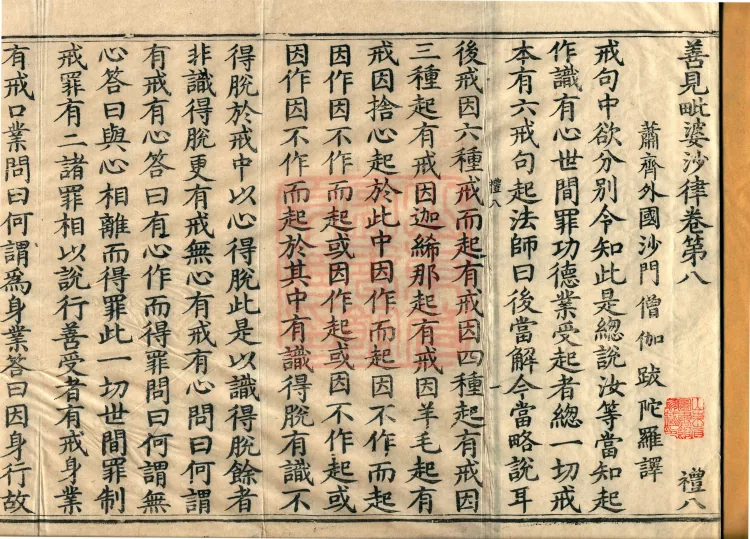 善見毗婆沙律卷第八
禮八
蕭齊外國沙門僧伽跋陀羅譯
戒句中欲分別今知此是總說汝等當知起
作識有心世間罪功德業受起者總一切戒
本有六戒句起法師曰後當解今當略說耳
禮八
一
後戒因六種戒而起有戒因四種起有戒因
三種起有戒因迦絺那起有戒因羊毛起有
戒因捨心起於此中因作而起因不作而起
因作因不作而起或因作起或因不作起或
因作因不作而起於其中有識得脫有識不
得脫於戒中以心得脫此是以識得脫餘者
非識得脫更有戒無心有戒有心問曰何謂
有戒有心答曰有心作而得罪問曰何謂無
心答曰與心相離而得罪此一切世間罪制
戒罪有二諸罪相以說行善受者有戒身業
有戒口業問曰何謂為身業答曰因身行故